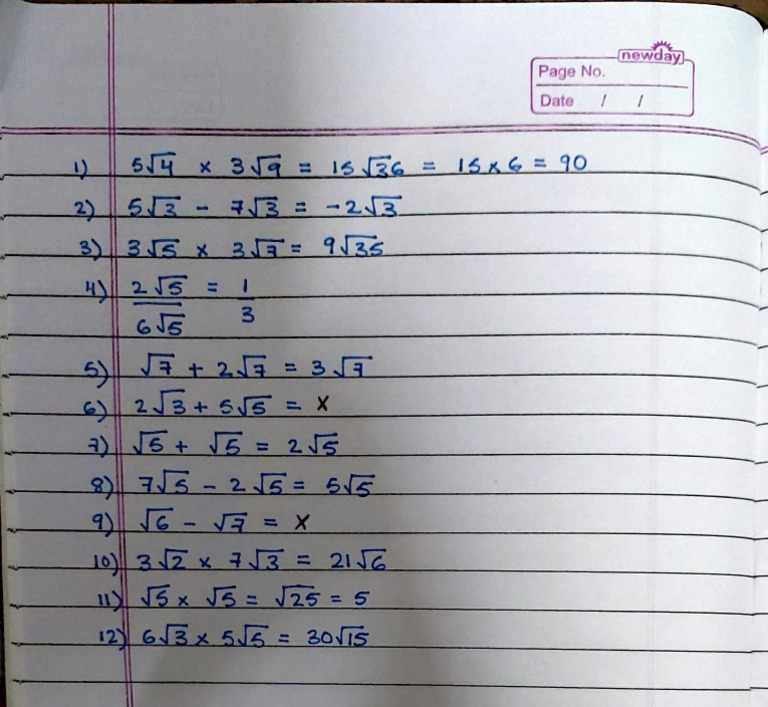 newday
Page No.
Date / /
1) 5√4 × 3√9 = 15√36 = 15×6 = 90
2) 5√3 - 7√3 = -2√3
3) 3√5 × 3√7 = 9√35
4) 2√5/6√5 = 1/3
5) √7 + 2√7 = 3√7
6) 2√3 + 5√5 = ×
7) √5 + √5 = 2√5
8) 7√5 - 2√5 = 5√5
9) √6 - √7 = ×
10) 3√2 × 7√3 = 21√6
11) √5 × √5 = √25 = 5
12) 6√3 × 5√5 = 30√15